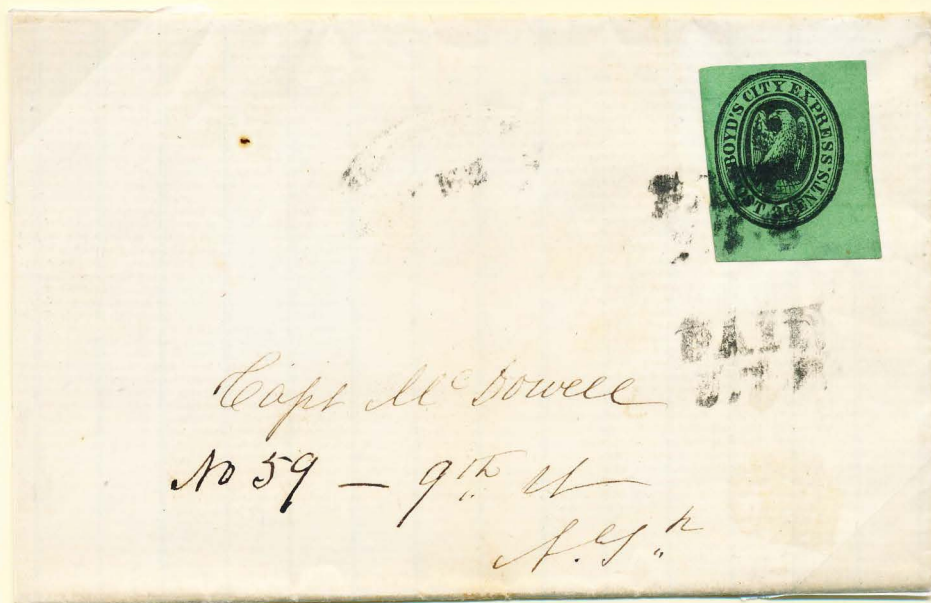 BOYD'S CITY EXPRESS
POST. 2 CENTS.
PAID
J.T.B.
Capt McDowell
No 59 — 9th St
N. Yk